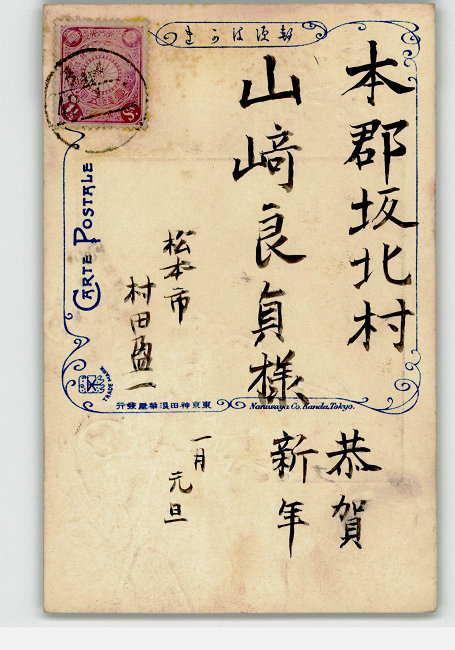 郵便はかき
本郡坂北村
山﨑良貞様
松本市
村田盈一
恭賀
新年
一月
元旦
CARTE POSTALE
TRADE MARK
東京神田浪華屋發行
Nanivaya Co. Kanda, Tokyo.